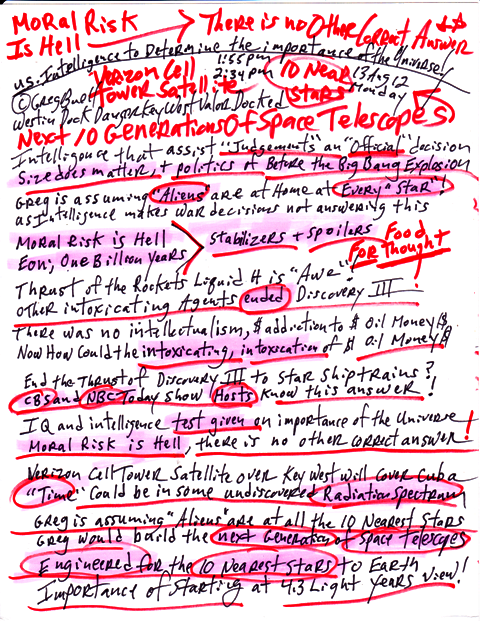 Moral Risk → There is no Other Correct Answer
Is Hell
U.S. Intelligence to Determine the importance of the Universe!
1:55pm
Verizon Cell 2:34pm 10 Near 13 Aug 12
© Greg Buell Tower Satellite Stars Monday
Westin Dock Danger Key West Valor Docked
Next 10 Generations Of Space Telescope(s)
Intelligence that assist "Judgements" an "Official" decision
Size does matter, + politics of Before the Big Bang Explosion
Greg is assuming "Aliens" are at Home at Every "Star"!
as Intelligence makes war decisions not answering this
Moral Risk is Hell
Eon; One Billion Years > Stabilizers + Spoilers Food
For Thought
Thrust of the Rockets Liquid H is "Awe"!
other intoxicating Agents ended Discovery III!
There was no intellectualism, $ addiction to $ Oil Money $
Now How Could the intoxicating, intoxication of $ Oil Money $
End the Thrust of Discovery III to Star Ship trains?
CBS and NBC Today Show Hosts Know this answer!
IQ and intelligence test given on importance of the Universe
Moral Risk is Hell, there is no other correct answer!
Verizon Cell Tower Satellite over Key West will cover Cuba
"Time" Could be in some undiscovered Radiation Spectrum
Greg is assuming "Aliens" are at all the 10 Nearest Stars
Greg would build the next Generation of Space Telescopes
Engineered for the 10 Nearest Stars to Earth
Importance of Starting at 4.3 Light Years View!